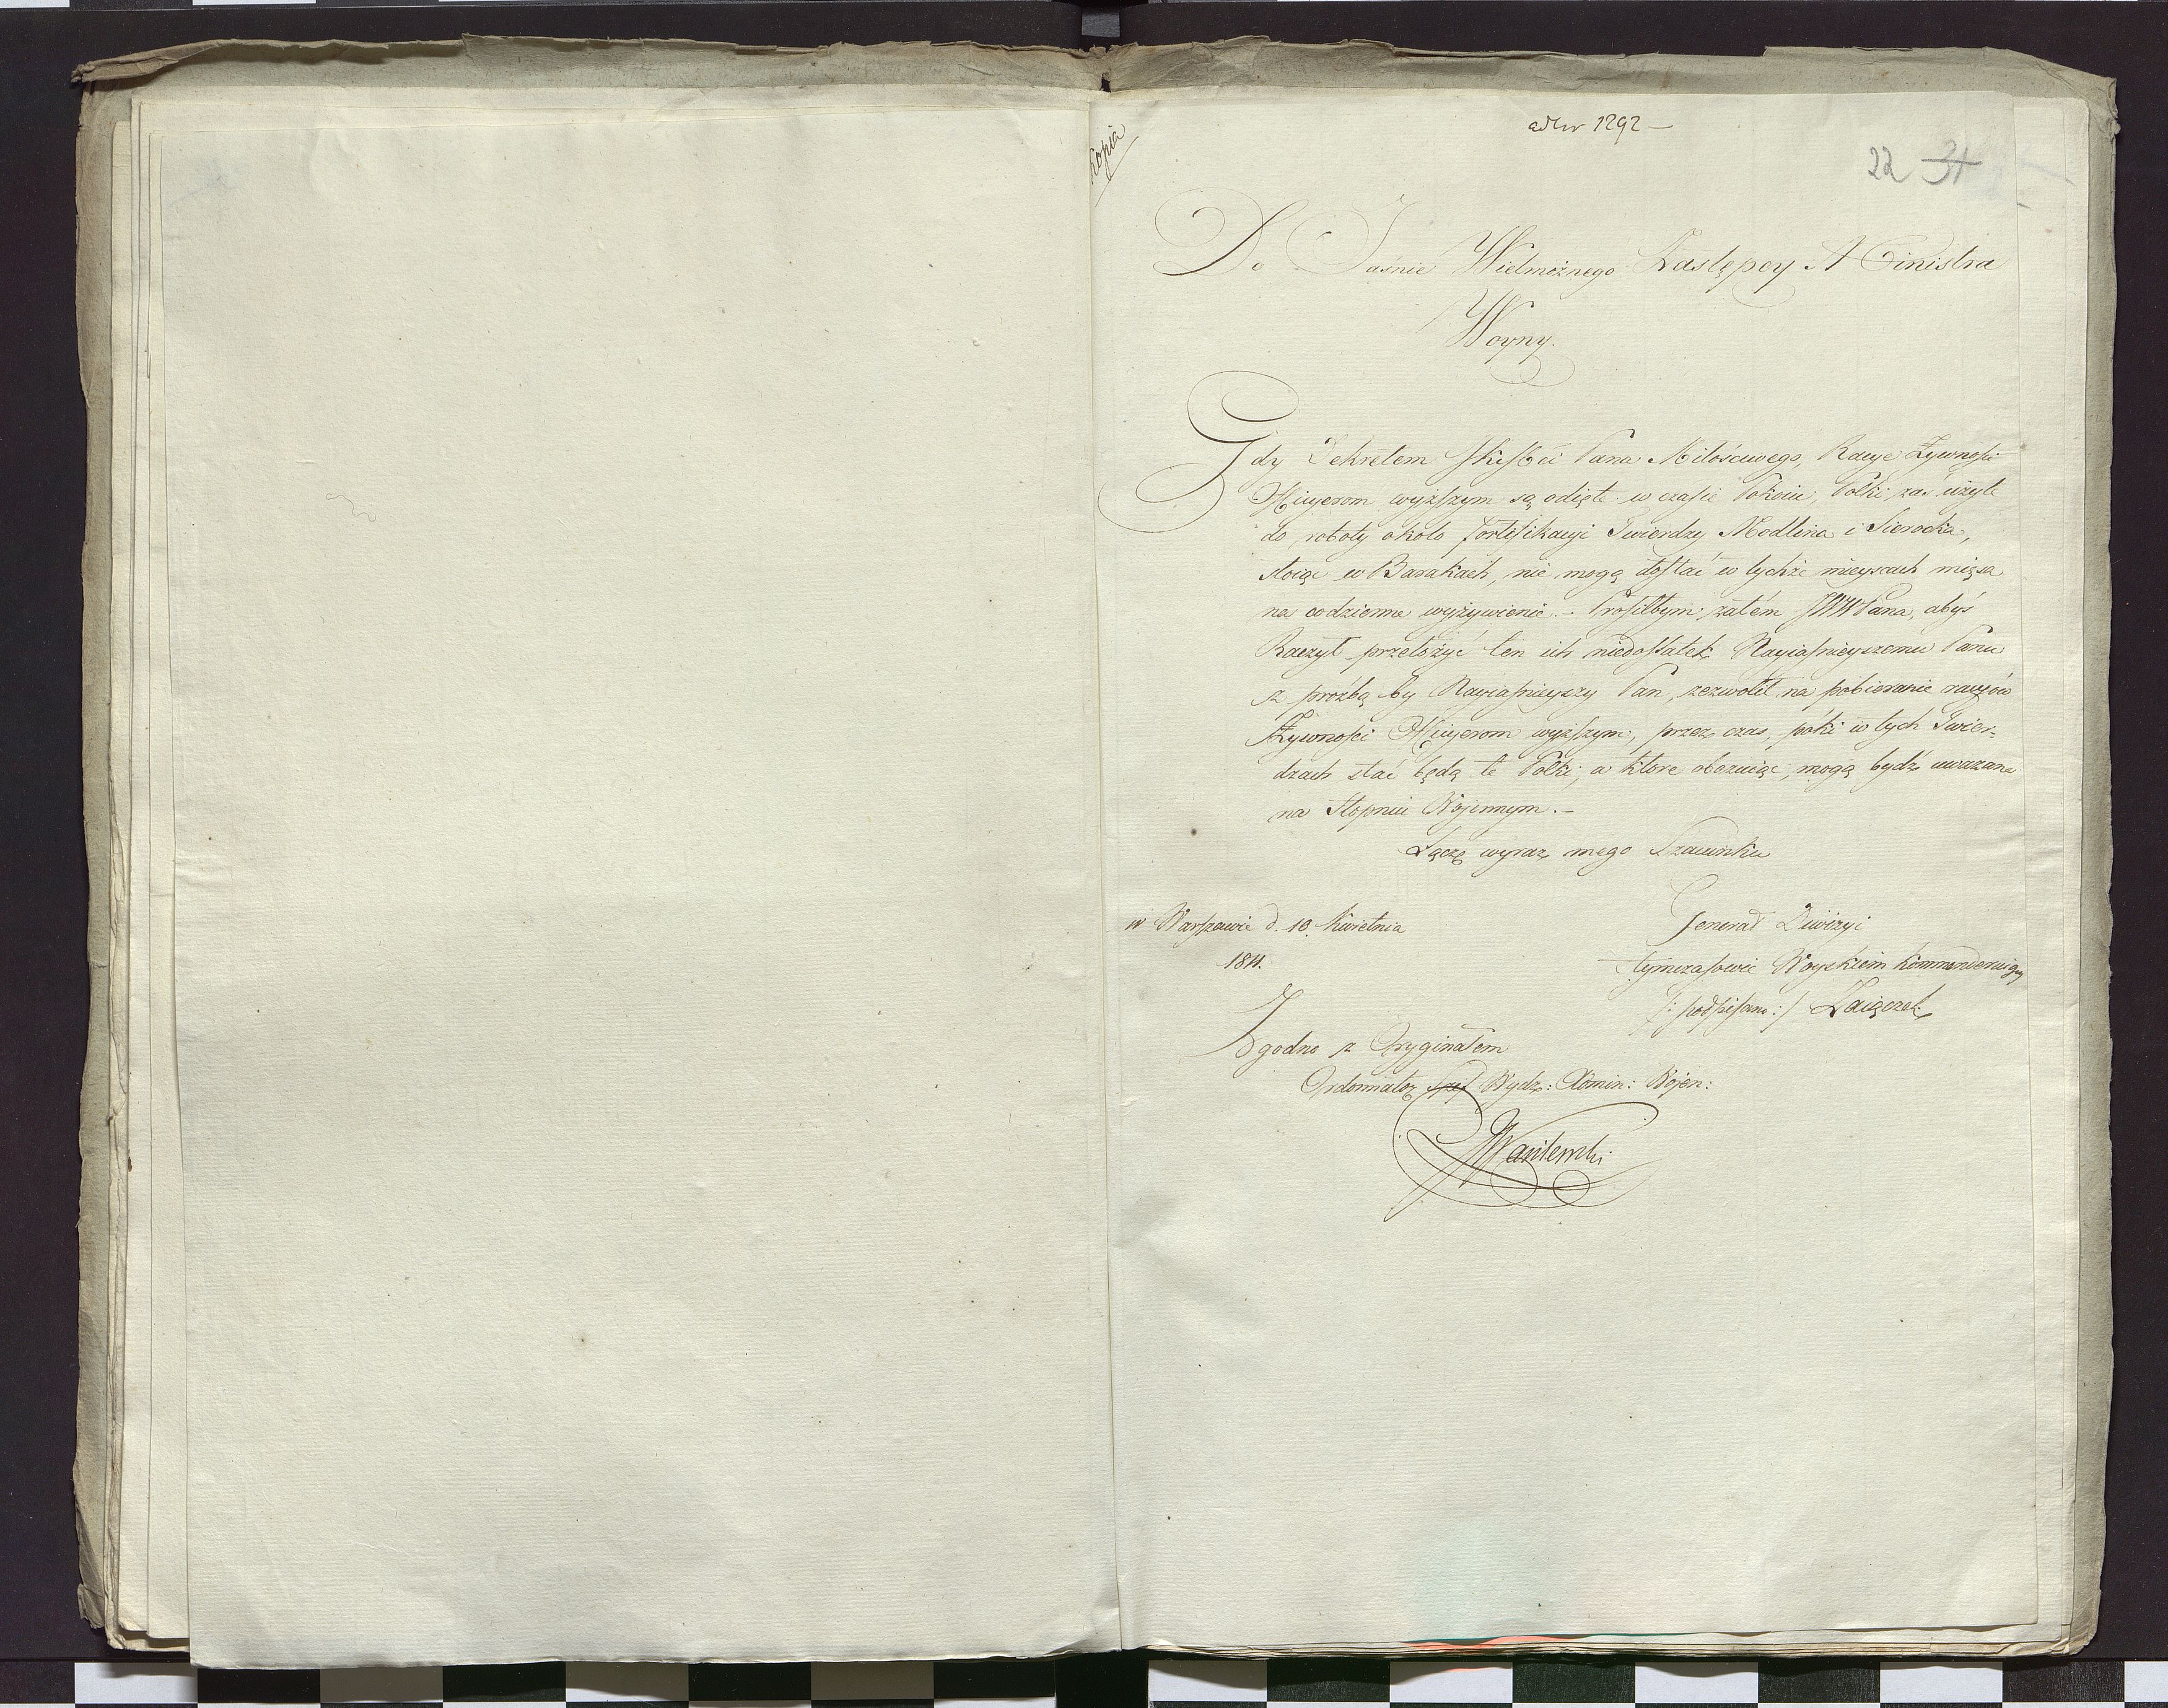 ad Nr 1292 —
Kopia
22 31
Do Jaśnie Wielmożnego Zastępcy Ministra
Woyny.
Gdy Dekretem JKsMci Pana Miłościwego, Racye Żywności
Officyerom wyższym są odięte w czasie Pokoiu, Połki zaś użyte
do roboty około fortifikacyi Twierdzy Modlina i Sierocka,
stoiąc w Barakach, nie mogą dostać w tychże mieyscach mięsa
na codzienne wyżywienie. – Prosiłbym zatém JWWPana, abyś
Raczył przełożyć ten ich niedostatek Nayiaśnieyszemu Panu
z prozbą by Nayiaśnieyszy Pan, zezwolił na pobieranie racyów
Żywności Officyerom wyższym, przez czas, póki w tych Twier-
dzach stać będą te Połki, a ktore obozuiąc, mogą bydź uważane
na Stopniu Wojennym. –
Łączę wyraz mego Szacunku
w Warszawie d. 10. Kwietnia
1811.
Generał Diwizyi
tymczasowie Woyskiem kommenderuiący
/: podpisano :/ Zaiączek
Zgodno z Oryginałem
Ordonnator Wydz: Admin: Wojen: